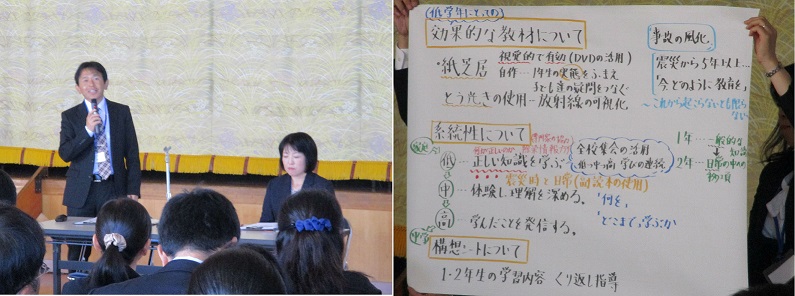 (低学年にとっての)
効果的な教材について
・紙芝居 視覚的で有効(DVDの活用)
自作…1年生の実態をふまえ
子ども達の疑問をつなぐ
とうきの使用―放射線の可視化
系統性について
低 正しい知識を学ぶ
全校集会の活用
小・中・高 学びの連続
震災時と日常(副読本の使用)
中 …体験し理解を深める。
「何を」
「どこまで」学ぶか
高 学んだことを発信する。
構想シートについて
1・2年生の学習内容 くり返し指導
事故の風化
震災から5年以上…
「今どのように教育を」
～これから起こらないとも限らない
1年…一般的な知識
2年…日常の中の